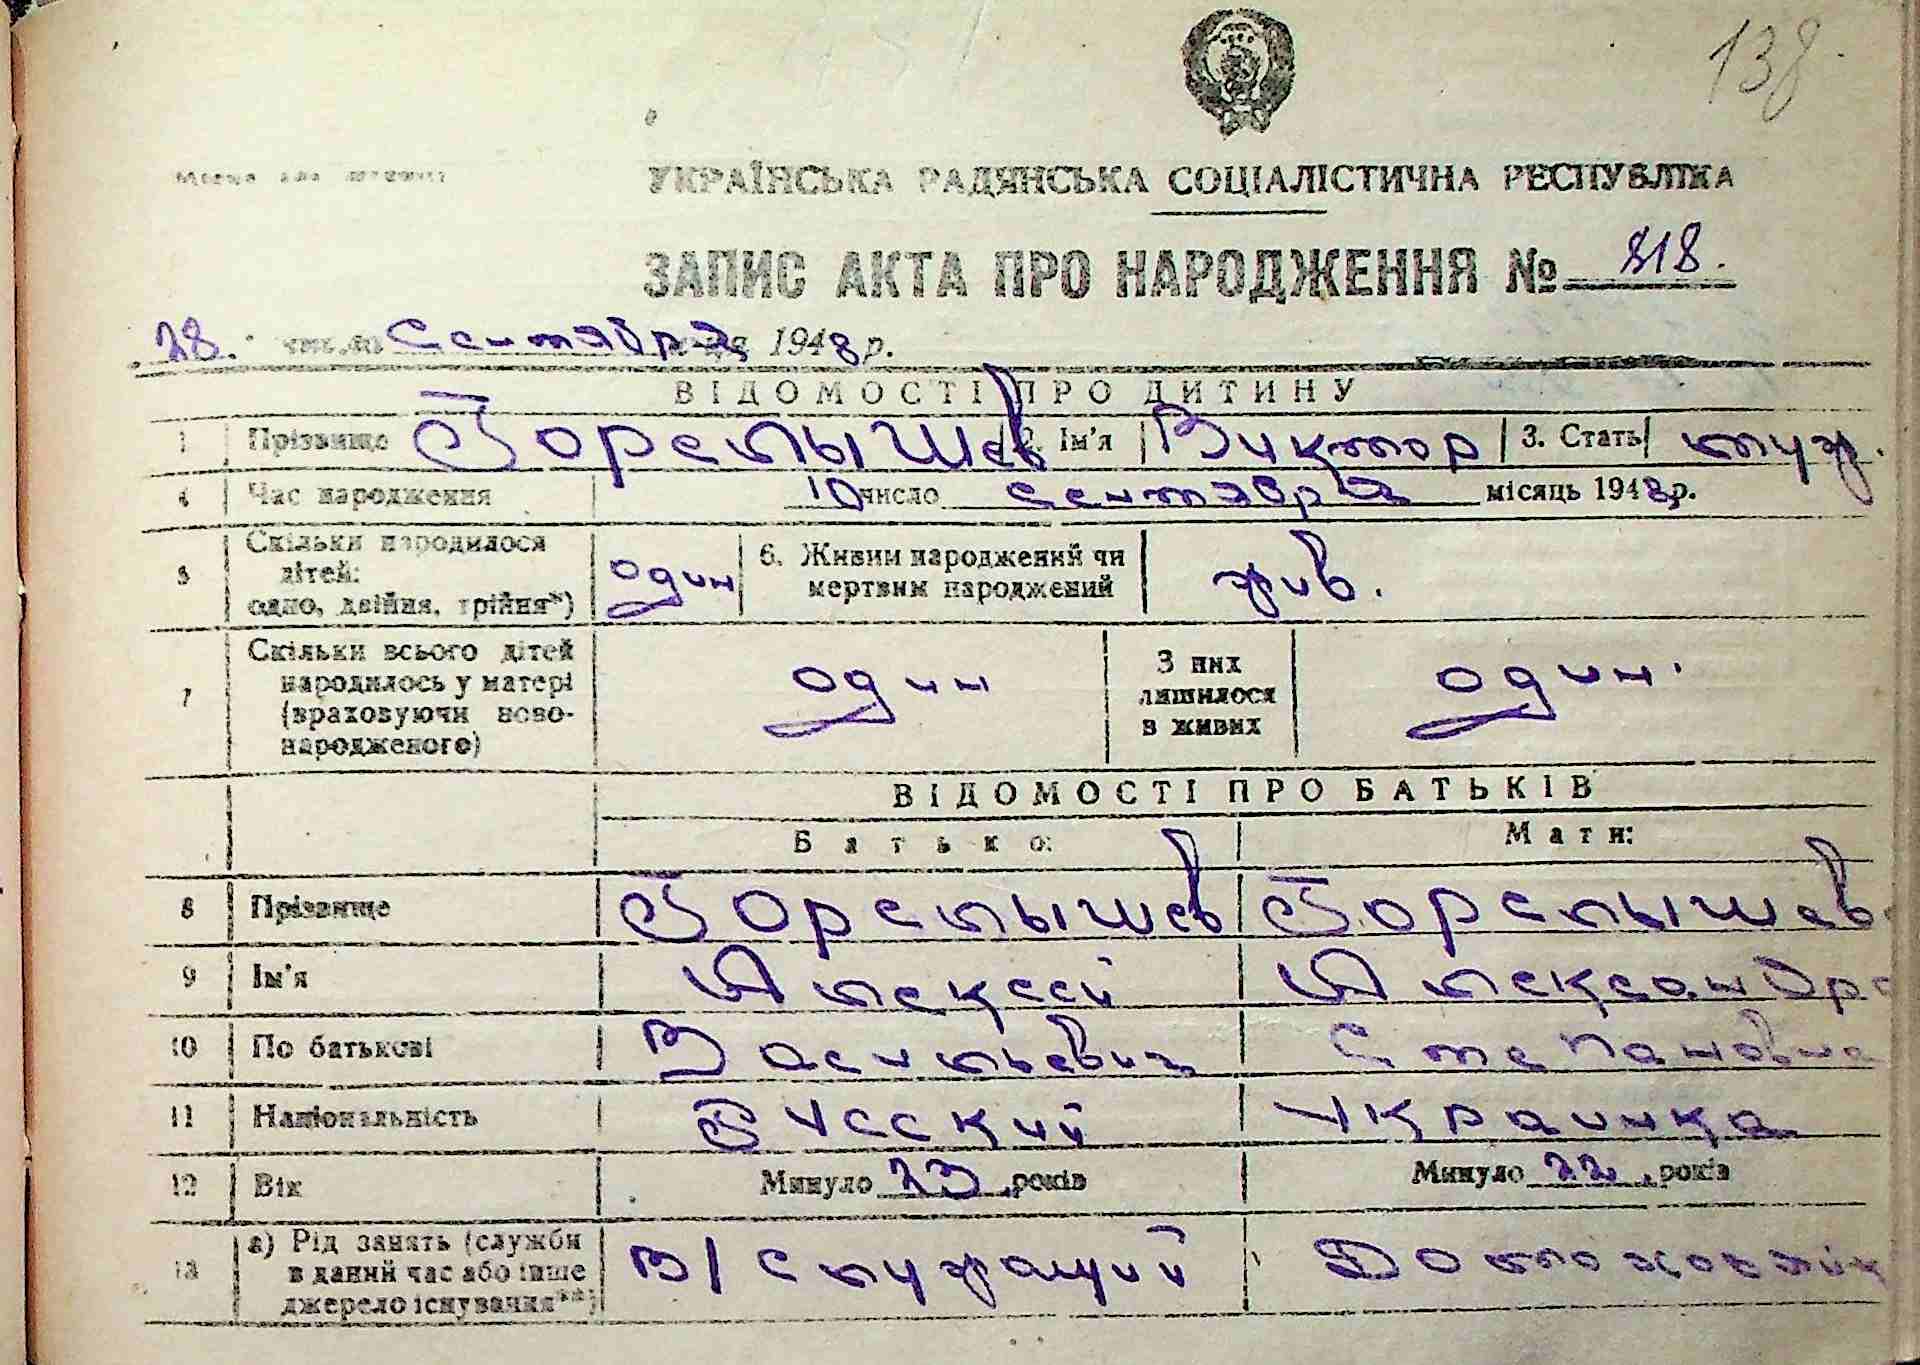 138.
УКРАЇНСЬКА РАДЯНСЬКА СОЦІАЛІСТИЧНА РЕСПУБЛІКА
ЗАПИС АКТА ПРО НАРОДЖЕННЯ № 818.
28. числа Сентября 1948 р.
ВІДОМОСТІ ПРО ДИТИНУ
1 Прізвище Горелышев 2. Ім'я Виктор 3. Стать муж.
4 Час народження 10 число сентября місяць 1948 р.
5 Скільки народилося дітей: одно, двійня, трійня*) один 6. Живим народжений чи мертвим народжений жив.
7 Скільки всього дітей народилось у матері (враховуючи новонародженого) один З них лишилося в живих один.
ВІДОМОСТІ ПРО БАТЬКІВ
Батько: Мати:
8 Прізвище Горелышев Горелышев
9 Ім'я Алексей Александра
10 По батькові Васильевич Степановна
11 Національність Русский Украинка
12 Вік Минуло 23 років Минуло 22 років
13 а) Рід занять (служби в даний час або інше джерело існування**) В/служащий